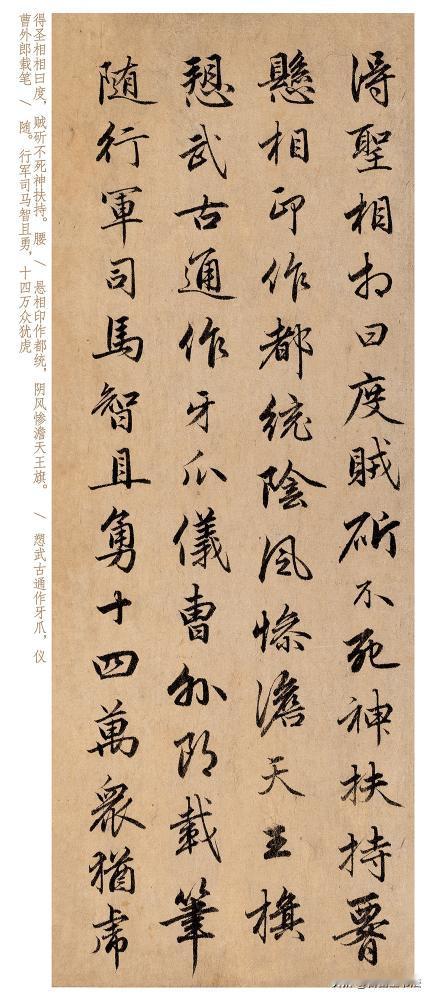 得聖相相曰度賊斫不死神扶持腰
懸相印作都統陰風慘澹天王旗
愬武古通作牙爪儀曹外郎載筆
随行軍司馬智且勇十四萬衆猶虎
得圣相相曰度，贼斫不死神扶持。腰 / 悬相印作都统，阴风惨澹天王旗。 / 愬武古通作牙爪，仪
曹外郎载笔 / 随。行军司马智且勇，十四万众犹虎